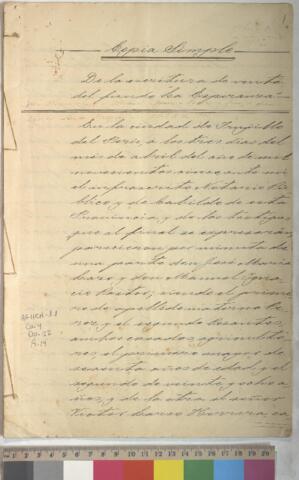 1
Copia Simple
De la escritura de venta
del fundo La Esperanza
En la ciudad de Trujillo
del Perú, a los tres días del
mes de abril del año de mil
novecientos ante mí
el infrascrito Notario Pú-
blico, y de cabildo de esta
Provincia, y de los testigos
que al final se expresarán,
parecieron por minuta de
una parte don José María
y don Manuel Igna-
cio siendo el prime-
ro de apellido materno
y el segundo
ambos casados, agriculto-
res, el primero mayor de
sesenta años de edad, y el
segundo de veinte y ocho a-
ños, y de la otra el señor
Víctor Larco Herrera, ca